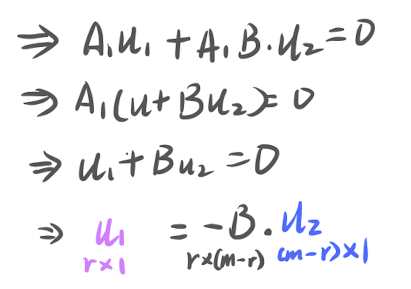 ⇒ A₁u₁ + A₁B·u₂ = 0
⇒ A₁(u + Bu₂) = 0
⇒ u₁ + Bu₂ = 0
⇒ u₁ = -B · u₂
r×1 r×(m-r) (m-r)×1